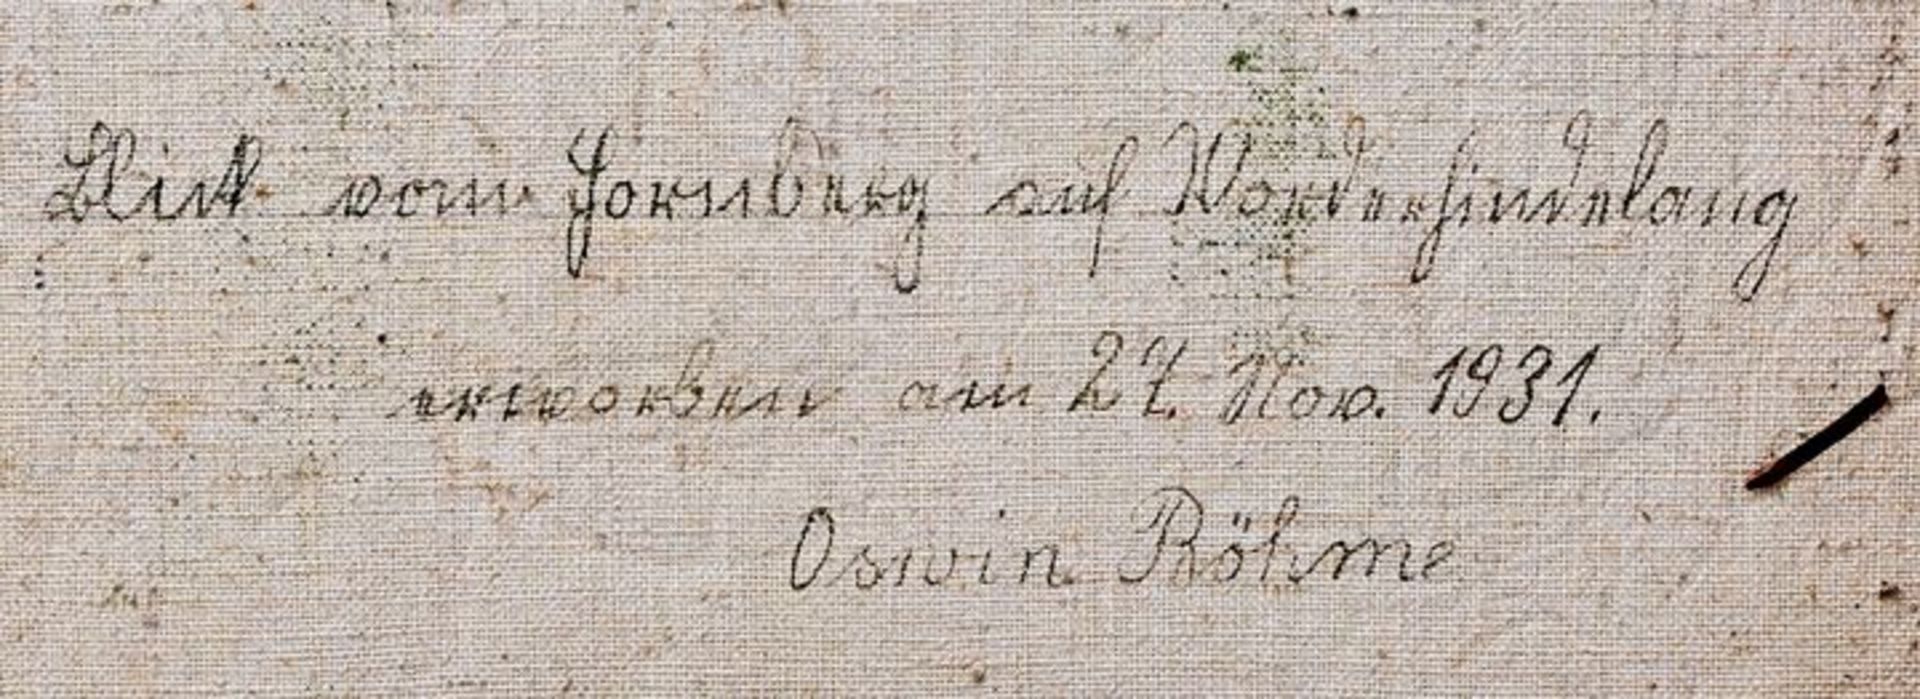 Blick vom Hornberg auf Vorderhindelang
erworben am 27. Nov. 1931.
Oswin Böhme